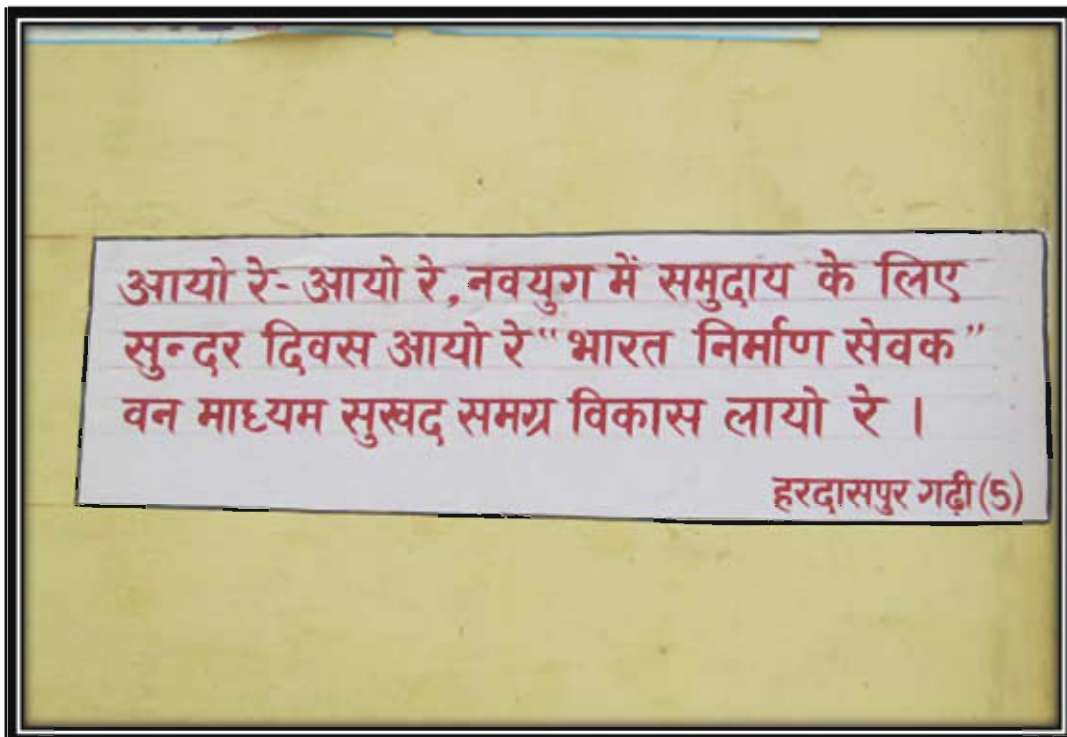 आयो रे- आयो रे, नवयुग में समुदाय के लिए
सुन्दर दिवस आयो रे "भारत निर्माण सेवक"
वन माध्यम सुखद समग्र विकास लायो रे ।
हरदासपुर गढ़ी (5)